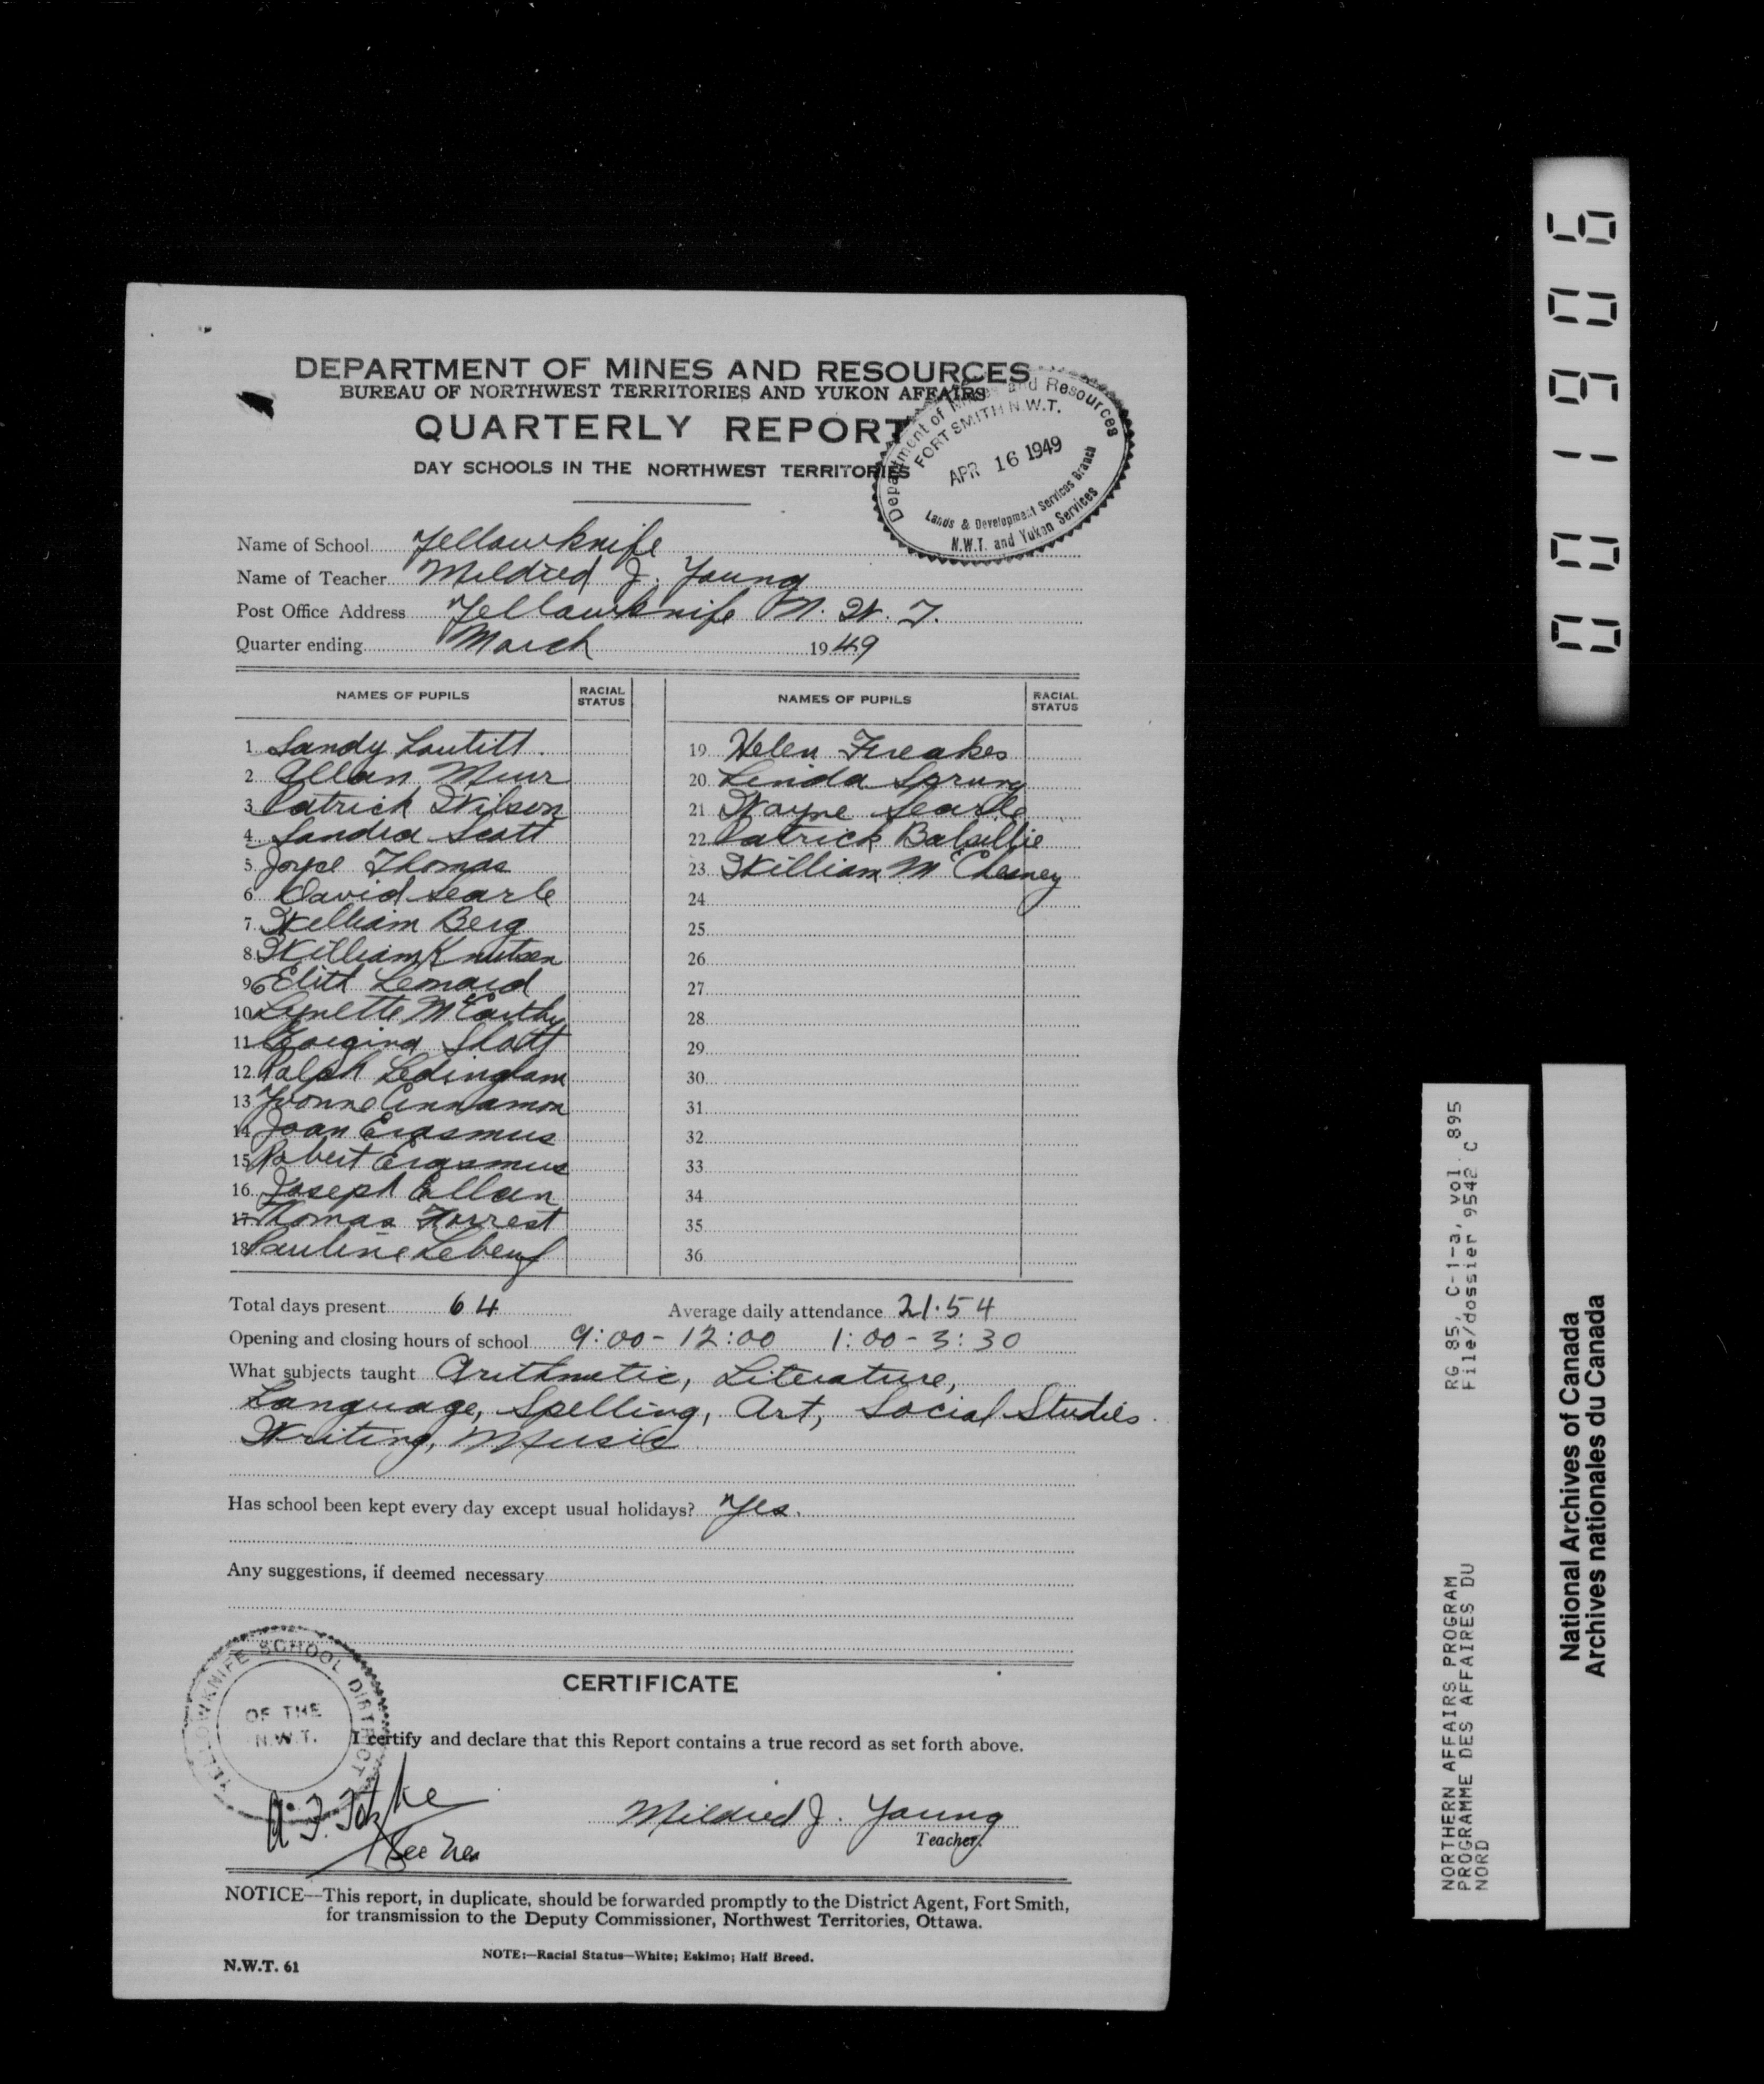 DEPARTMENT OF MINES AND RESOURCES
BUREAU OF NORTHWEST TERRITORIES AND YUKON AFFAIRS
QUARTERLY REPORT
DAY SCHOOLS IN THE NORTHWEST TERRITORIES
Department of Mines and Resources
FORT SMITH N.W.T.
APR 16 1949
Lands & Development Services Branch
N.W.T. and Yukon Services
Name of School Yellowknife
Name of Teacher Mildred J. Young
Post Office Address Yellowknife N.W.T.
Quarter ending March 1949
NAMES OF PUPILS RACIAL STATUS NAMES OF PUPILS RACIAL STATUS
1 Sandy Loutitt.
2 Allan Muir
3 Patrick Wilson
4 Sandra Scott
5 Joyce Thomas
6 David Searle
7 William Berg
8 William Knutsen
9 Leonard
10 Lynette McCarthy
11 Georgina
12 Ralph Ledingham
13 Yvonne Cinnamon
14 Joan Erasmus
15 Robert Erasmus
16 Joseph Allan
17 Thomas Forrest
18 Pauline Lebeuf
19 Helen Freakes
20 Linda Sprung
21 Wayne Searle
22 Patrick Balsillie
23 William McChesney
24
25
26
27
28
29
30
31
32
33
34
35
36
Total days present 64 Average daily attendance 21.54
Opening and closing hours of school 9:00-12:00 1:00-3:30
What subjects taught Arithmetic, Literature,
Language, Spelling, Art, Social Studies.
Writing, Music
Has school been kept every day except usual holidays? Yes.
Any suggestions, if deemed necessary
YELLOWKNIFE SCHOOL DISTRICT
OF THE
N.W.T.
CERTIFICATE
I certify and declare that this Report contains a true record as set forth above.
Mildred J. Young
Teacher.
NOTICE—This report, in duplicate, should be forwarded promptly to the District Agent, Fort Smith,
for transmission to the Deputy Commissioner, Northwest Territories, Ottawa.
NOTE:—Racial Status—White; Eskimo; Half Breed.
N.W.T. 61
001906
RG 85, C-1-a, vol. 895
File/dossier 9542 C
NORTHERN AFFAIRS PROGRAM
PROGRAMME DES AFFAIRES DU
NORD
National Archives of Canada
Archives nationales du Canada